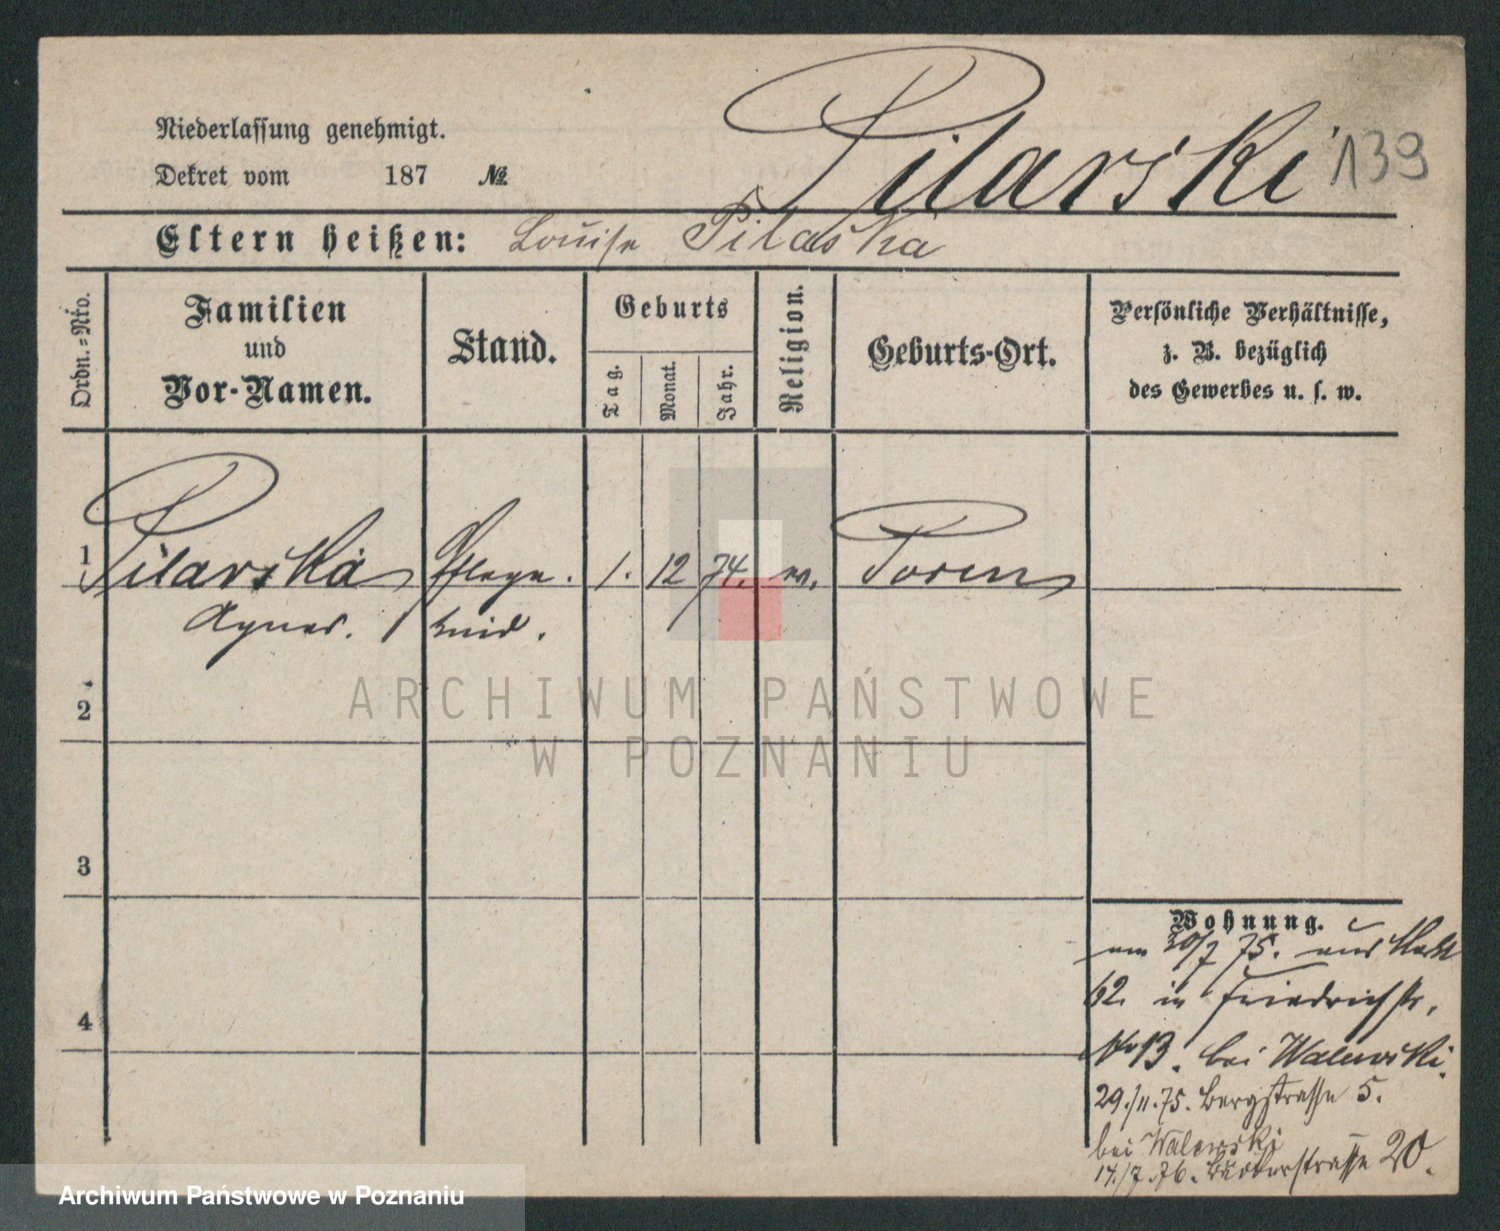 Pilarski 139
Niederlassung genehmigt.
Dekret vom 187 №
Eltern heißen: Louise Pilaska
Ordn.=Nro.
Familien
und
Vor-Namen.
Stand.
Geburts
Tag.
Monat.
Jahr.
Religion.
Geburts-Ort.
Persönliche Verhältnisse,
z. B. bezüglich
des Gewerbes u. s. w.
1 Pilarska Pflege. 1. 12 74. Posen
Agnes. kind.
2
3
4
Wohnung.
am 30/7 75. aus Markt
62. in Friedrichstr.
No 13. bei Walewski.
29./11.75. Bergstrasse 5.
bei Walewski
14./7.76. 20.
ARCHIWUM PAŃSTWOWE
W POZNANIU
Archiwum Państwowe w Poznaniu